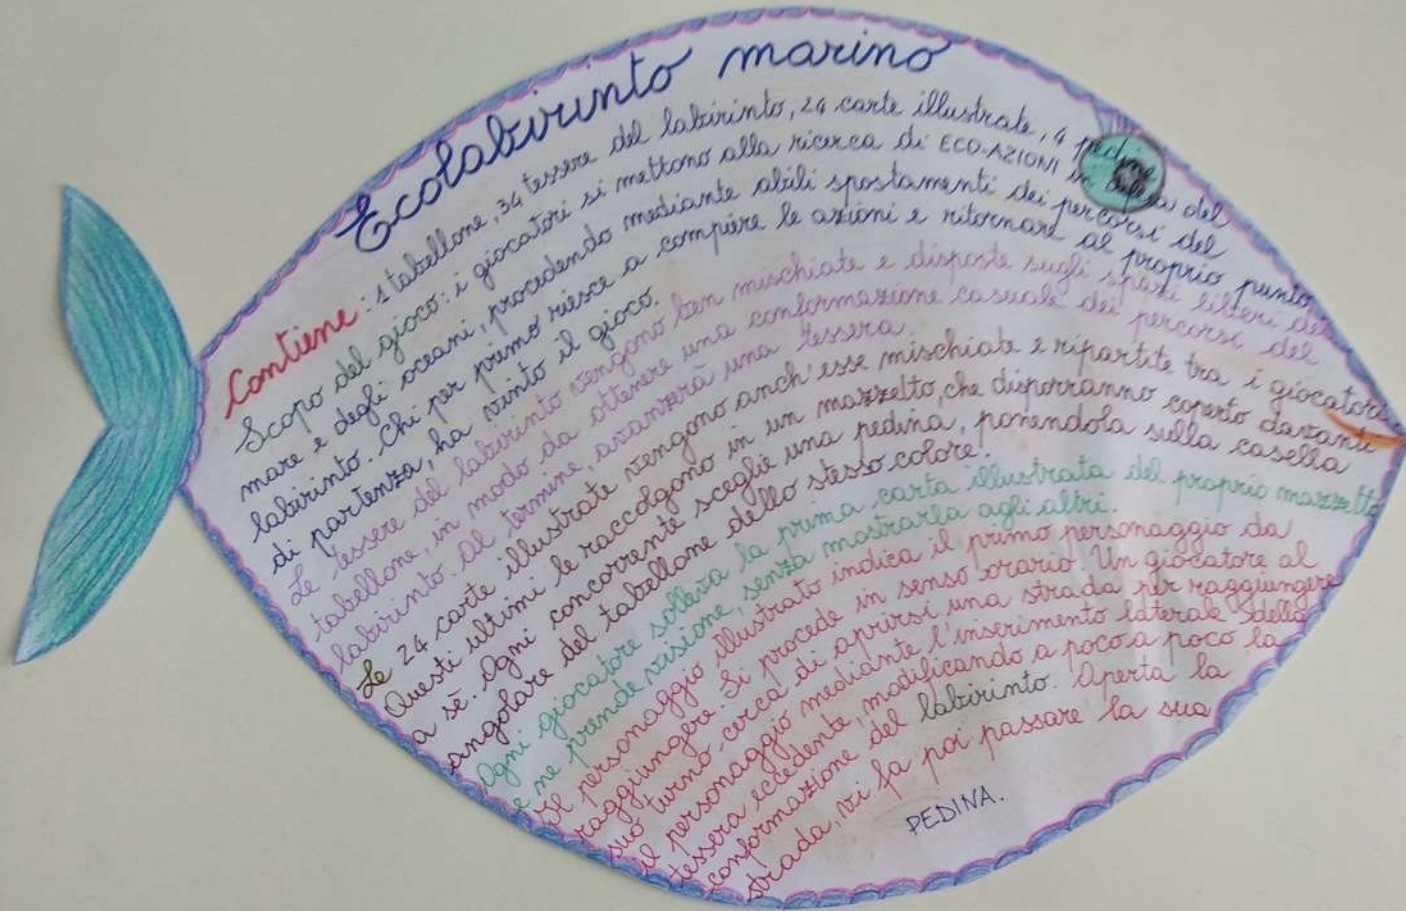 Ecolabirinto marino
Contiene: 1 tabellone, 34 tessere del labirinto, 24 carte illustrate, 4 pedine
Scopo del gioco: i giocatori si mettono alla ricerca di ECO-AZIONI in difesa del
mare e degli oceani, procedendo mediante abili spostamenti dei percorsi del
labirinto. Chi per primo riesce a compiere le azioni e ritornare al proprio punto
di partenza, ha vinto il gioco.
Le tessere del labirinto vengono ben mischiate e disposte sugli spazi liberi del
tabellone, in modo da ottenere una conformazione casuale dei percorsi del
labirinto. Al termine, avanzerà una tessera.
Le 24 carte illustrate vengono anch'esse mischiate e ripartite tra i giocatori
Questi ultimi le raccolgono in un mazzetto, che disporranno coperto davanti
a sé. Ogni concorrente sceglie una pedina, ponendola sulla casella
angolare del tabellone dello stesso colore.
Ogni giocatore solleva la prima carta illustrata del proprio mazzetto
e ne prende visione, senza mostrarla agli altri.
Il personaggio illustrato indica il primo personaggio da
raggiungere. Si procede in senso orario. Un giocatore al
suo turno cerca di aprirsi una strada per raggiungere
il personaggio mediante l'inserimento laterale della
tessera eccedente, modificando a poco a poco la
conformazione del labirinto. Aperta la
strada, vi fa poi passare la sua
PEDINA.